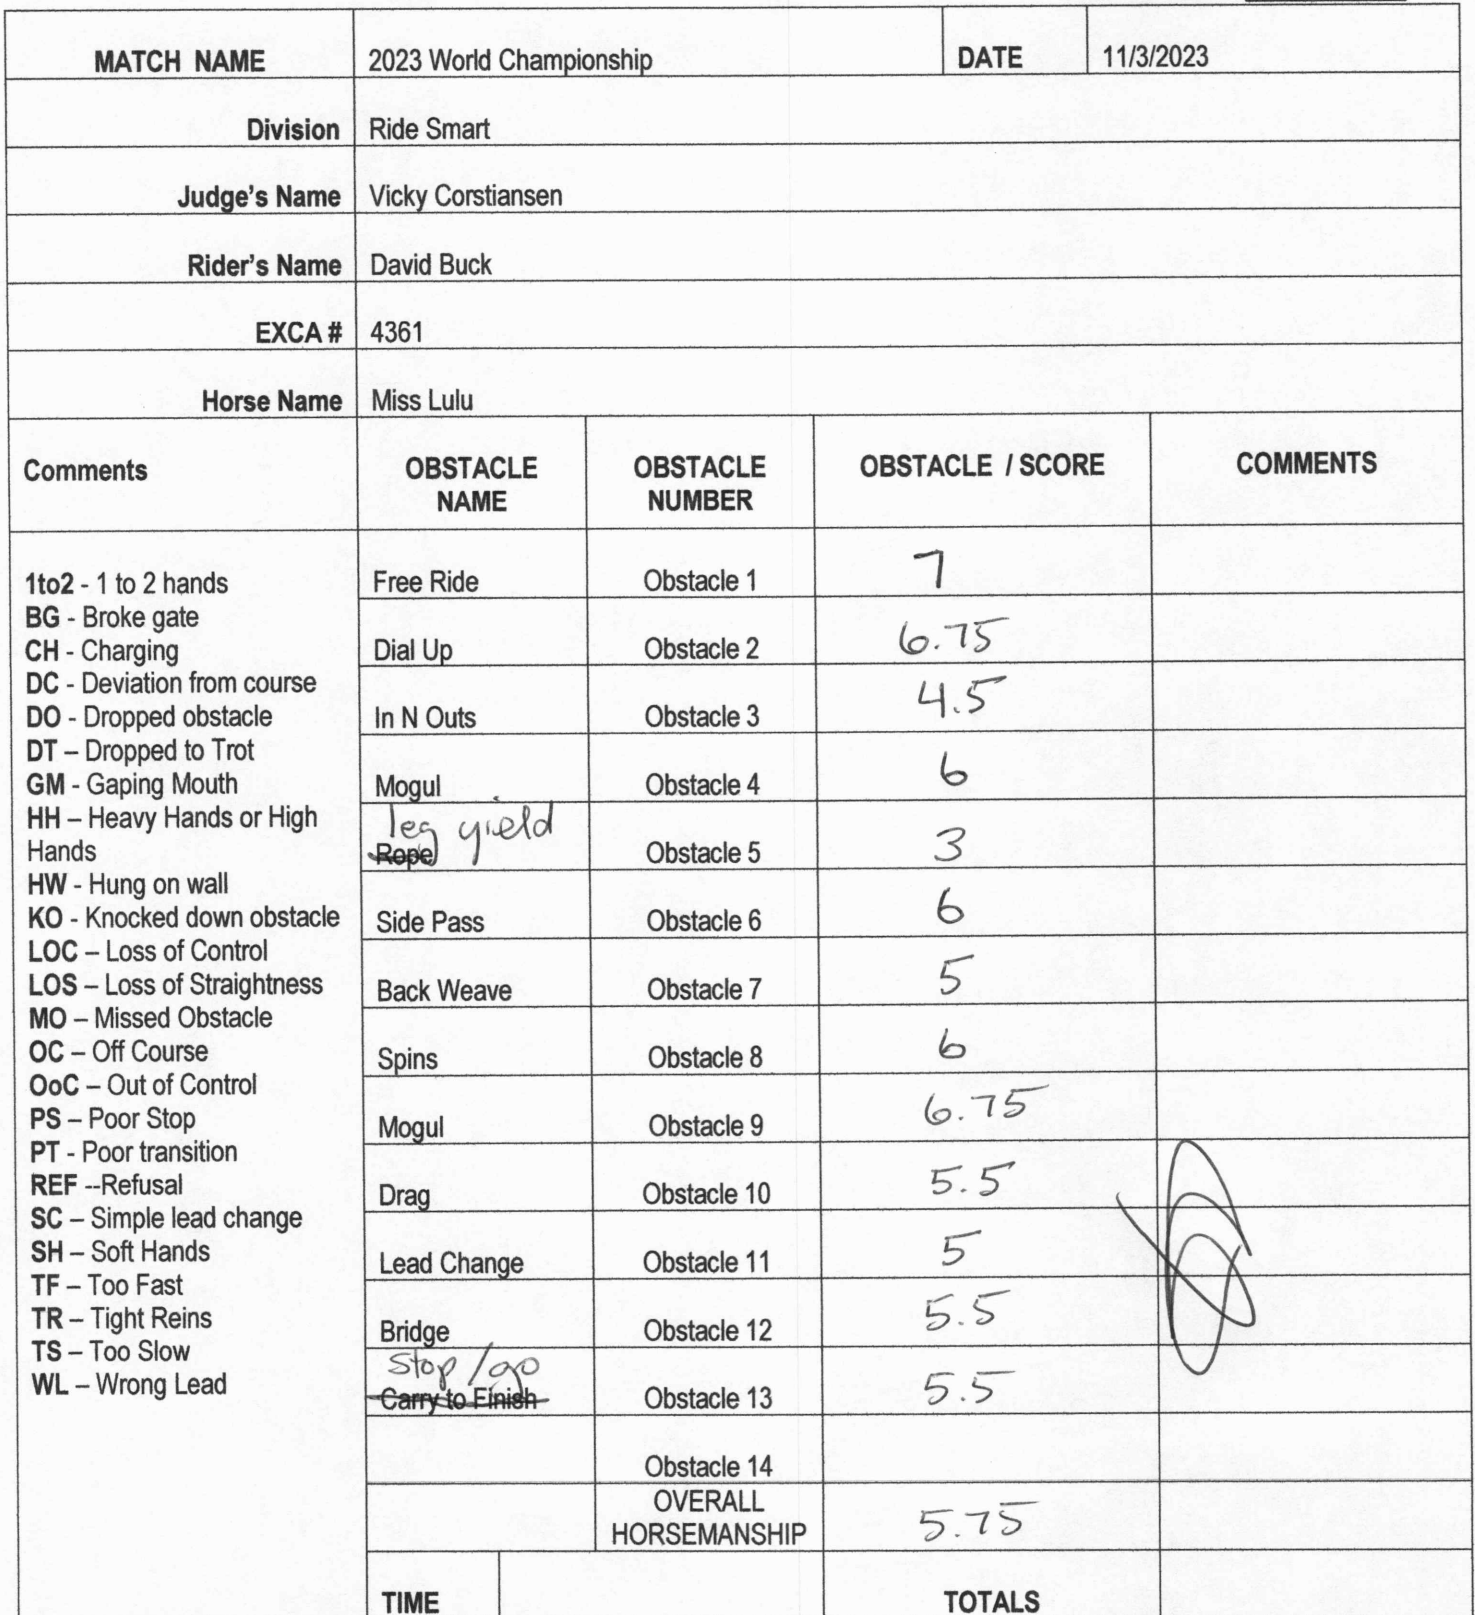 MATCH NAME 2023 World Championship DATE 11/3/2023
Division Ride Smart
Judge's Name Vicky Corstiansen
Rider's Name David Buck
EXCA # 4361
Horse Name Miss Lulu
Comments OBSTACLE NAME OBSTACLE NUMBER OBSTACLE / SCORE COMMENTS
1to2 - 1 to 2 hands
BG - Broke gate
CH - Charging
DC - Deviation from course
DO - Dropped obstacle
DT – Dropped to Trot
GM - Gaping Mouth
HH – Heavy Hands or High
Hands
HW - Hung on wall
KO - Knocked down obstacle
LOC – Loss of Control
LOS – Loss of Straightness
MO – Missed Obstacle
OC – Off Course
OoC – Out of Control
PS – Poor Stop
PT - Poor transition
REF --Refusal
SC – Simple lead change
SH – Soft Hands
TF – Too Fast
TR – Tight Reins
TS – Too Slow
WL – Wrong Lead
Free Ride Obstacle 1 7
Dial Up Obstacle 2 6.75
In N Outs Obstacle 3 4.5
Mogul Obstacle 4 6
leg yield
Rope Obstacle 5 3
Side Pass Obstacle 6 6
Back Weave Obstacle 7 5
Spins Obstacle 8 6
Mogul Obstacle 9 6.75
Drag Obstacle 10 5.5
Lead Change Obstacle 11 5
Bridge Obstacle 12 5.5
stop/go
Carry to Finish Obstacle 13 5.5
Obstacle 14
OVERALL
HORSEMANSHIP 5.75
TIME TOTALS